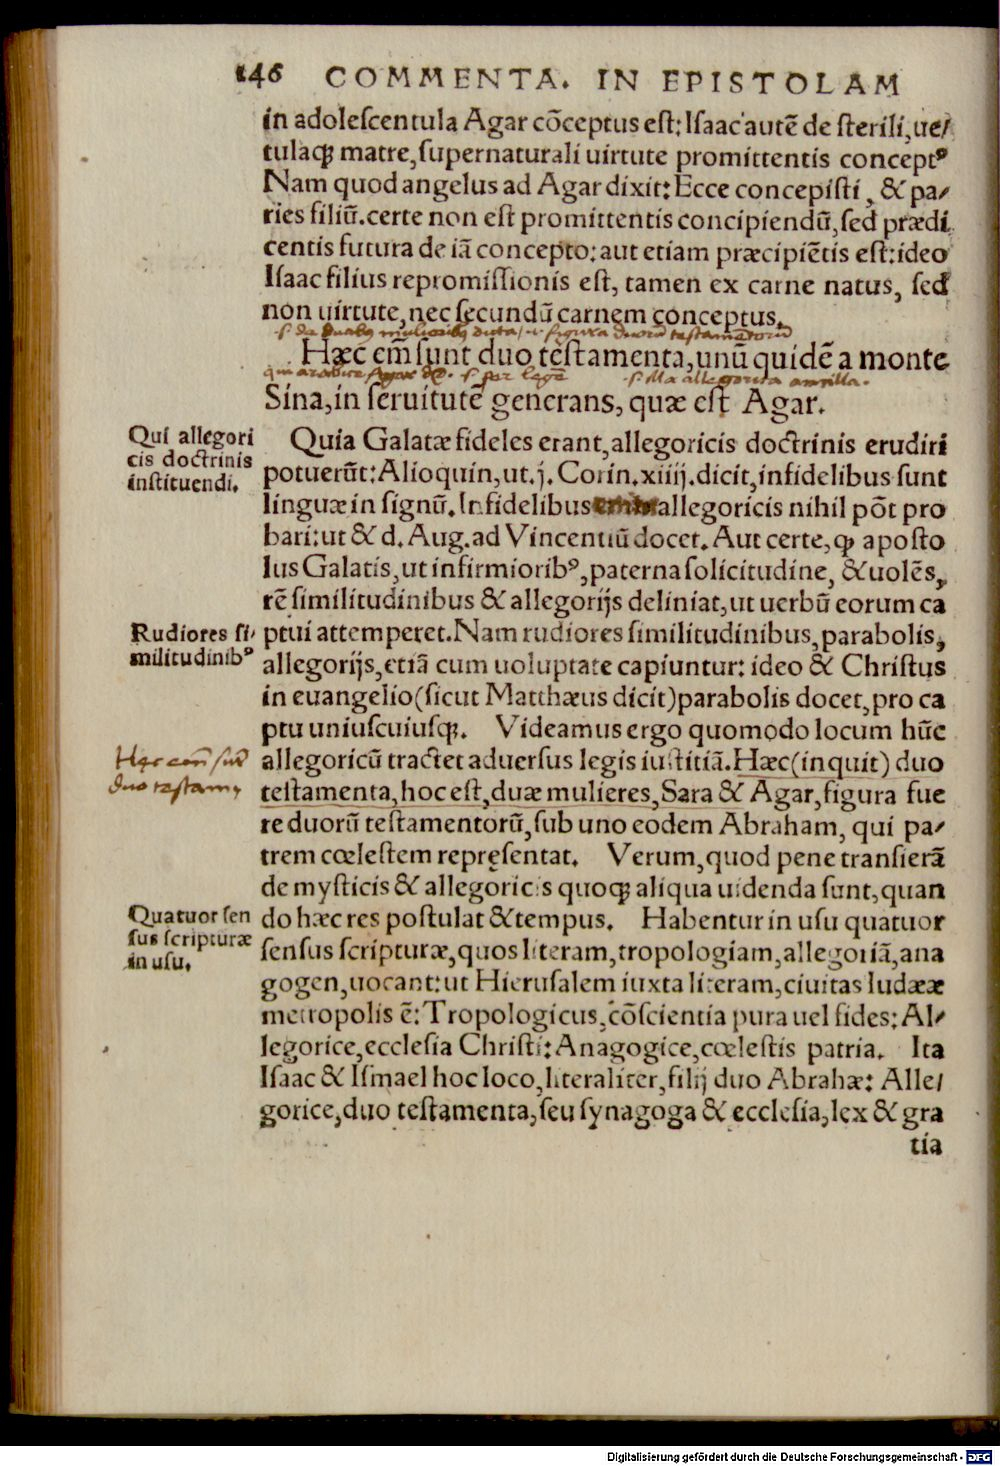 146 COMMENTA. IN EPISTOLAM
in adolescentula Agar cõceptus est: Isaac autẽ de sterili, ue/
tulaqꝫ matre, supernaturali uirtute promittentis conceptꝰ
Nam quod angelus ad Agar dixit: Ecce concepisti, & pa/
ries filiũ. certe non est promittentis concipiendũ, sed prædi
centis futura de iã concepto: aut etiam præcipiẽtis est: ideo
Isaac filius repromissionis est, tamen ex carne natus, sed
non uirtute, nec secundũ carnem conceptus.
.s. de duabꝰ mulieribꝰ dicta, i. figura duorũ testamẽtorũ
Hæc em̃ sunt duo testamenta, unũ quidẽ a monte
.s. per legẽ .s. illa allegorica ancilla.
Sina, in seruitutẽ generans, quæ est Agar.
Qui allegori
cis doctrinis
instituendi.
Quia Galatæ fideles erant, allegoricis doctrinis erudiri
potuerũt: Alioquin, ut. j. Corin. xiiij. dicit, infidelibus sunt
linguæ in signũ. Infidelibus allegoricis nihil põt pro
bari: ut & d. Aug. ad Vincentiũ docet. Aut certe, ꝙ aposto
lus Galatis, ut infirmioribꝰ, paterna solicitudine, & uolẽs,
rẽ similitudinibus & allegorijs deliniat, ut uerbũ eorum ca
Rudiores si/
militudinibꝰ
ptui attemperet. Nam rudiores similitudinibus, parabolis,
allegorijs, etiã cum uoluptate capiuntur: ideo & Christus
in euangelio (sicut Matthæus dicit) parabolis docet, pro ca
ptu uniuscuiusqꝫ. Videamus ergo quomodo locum hũc
Hęc em̃ sũt
duo testam,
allegoricũ tractet aduersus legis iustitiã. Hæc (inquit) duo
testamenta, hoc est, duæ mulieres, Sara & Agar, figura fue
re duorũ testamentorũ, sub uno eodem Abraham, qui pa/
trem cœlestem repręsentat. Verum, quod pene transierã
de mysticis & allegoricis quoqꝫ aliqua uidenda sunt, quan
Quatuor sen
sus scripturæ
in usu.
do hæc res postulat & tempus. Habentur in usu quatuor
sensus scripturæ, quos literam, tropologiam, allegoriã, ana
gogen, uocant: ut Hierusalem iuxta literam, ciuitas Iudææ
metropolis ẽ: Tropologicus, cõscientia pura uel fides: Al/
legorice, ecclesia Christi: Anagogice, cœlestis patria. Ita
Isaac & Ismael hoc loco, literaliter, filij duo Abrahæ: Alle/
gorice, duo testamenta, seu synagoga & ecclesia, lex & gra
tia
Digitalisierung gefördert durch die Deutsche Forschungsgemeinschaft - DFG